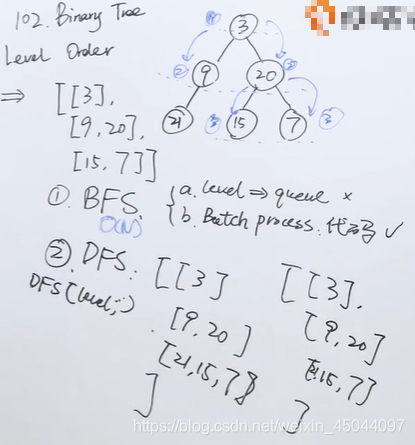 102. Binary Tree
Level Order
3
9
20
21
15
7
⇒ [[3],
[9,20],
[15,7]]
① BFS. { a. level ⇒ queue ×
O(N) { b. Batch process. 代码 ✓
② DFS: [[3] [[3],
DFS(level,:) [9,20] [9,20]
[21,15,7] 15,7]
] ]
https://blog.csdn.net/weixin_45044097